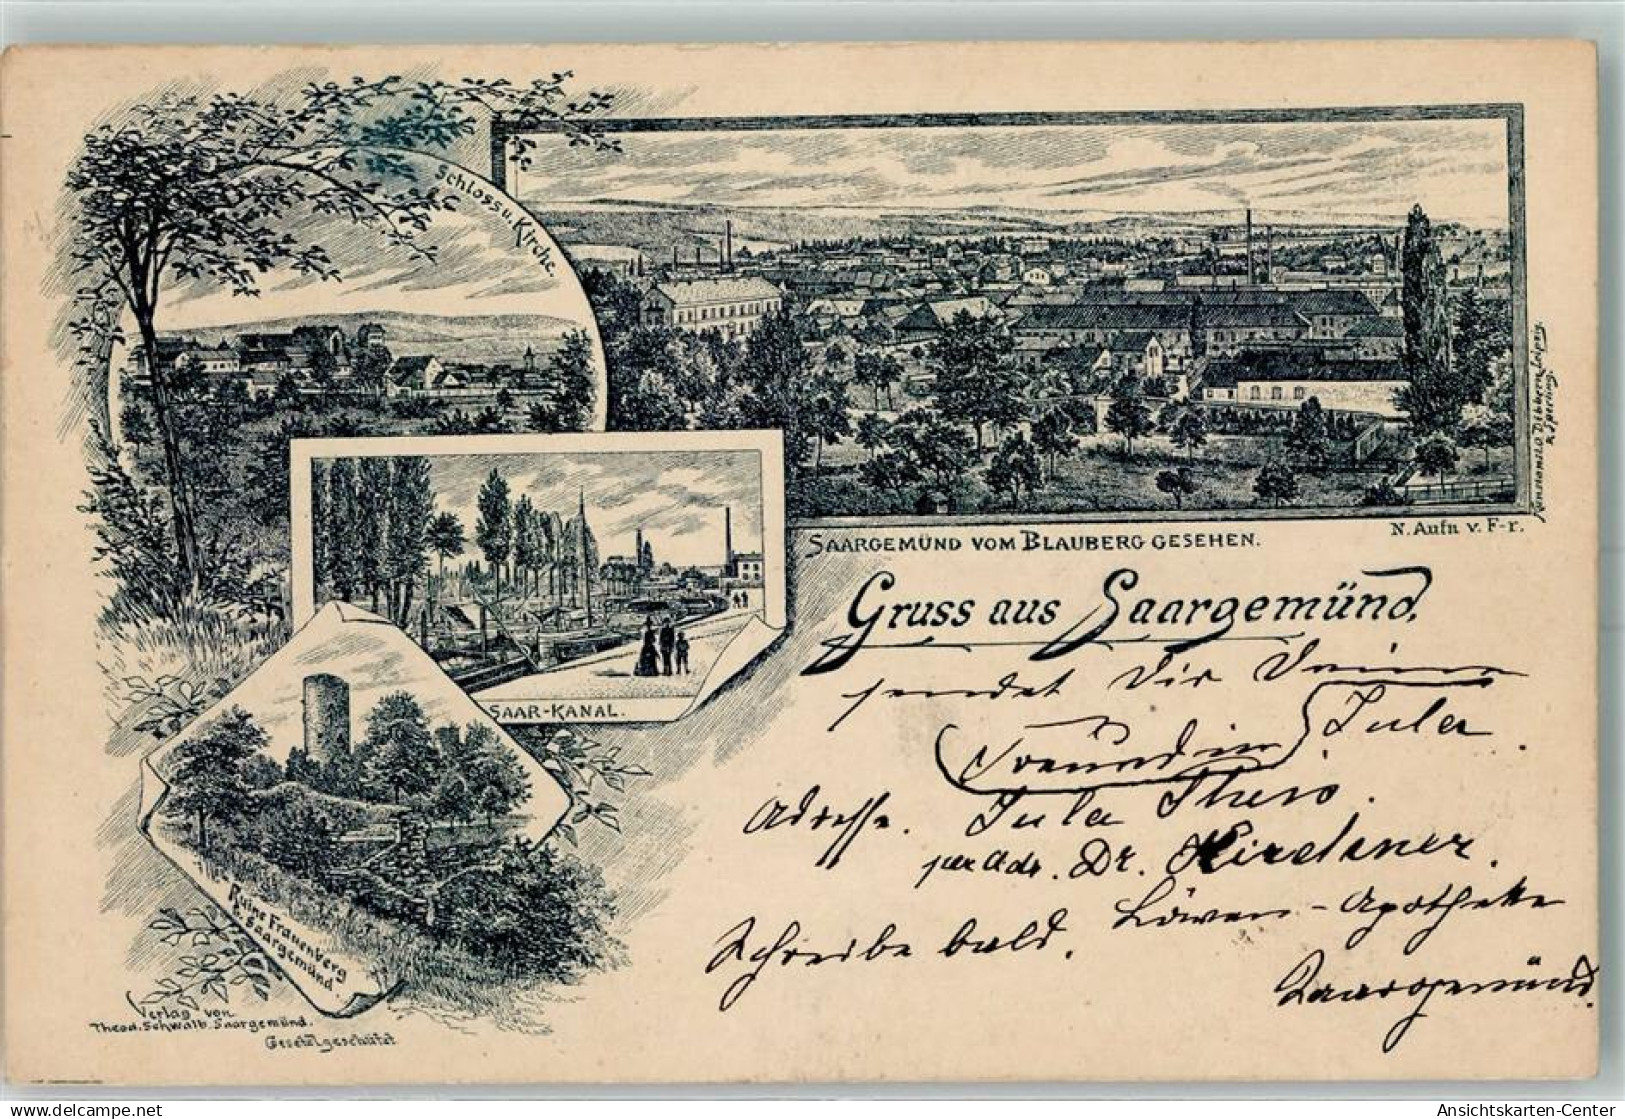 Schloss u. Kirche.
SAARGEMÜND VOM BLAUBERG GESEHEN.
N. Aufn v. F-r.
SAAR-KANAL.
Ruine Frauenberg
b. Saargemünd
Verlag von
Theod. Schwalb. Saargemünd.
Gesetzl geschützt
Gruss aus Saargemünd.
sendet Dir Deine
Freundin Jula.
Adresse. Jula
per Adr. Dr. Kirchner.
Löwen-Apotheke
Schreibe bald.
Saargemünd.
Ansichtskarten-Center
delcampe.net